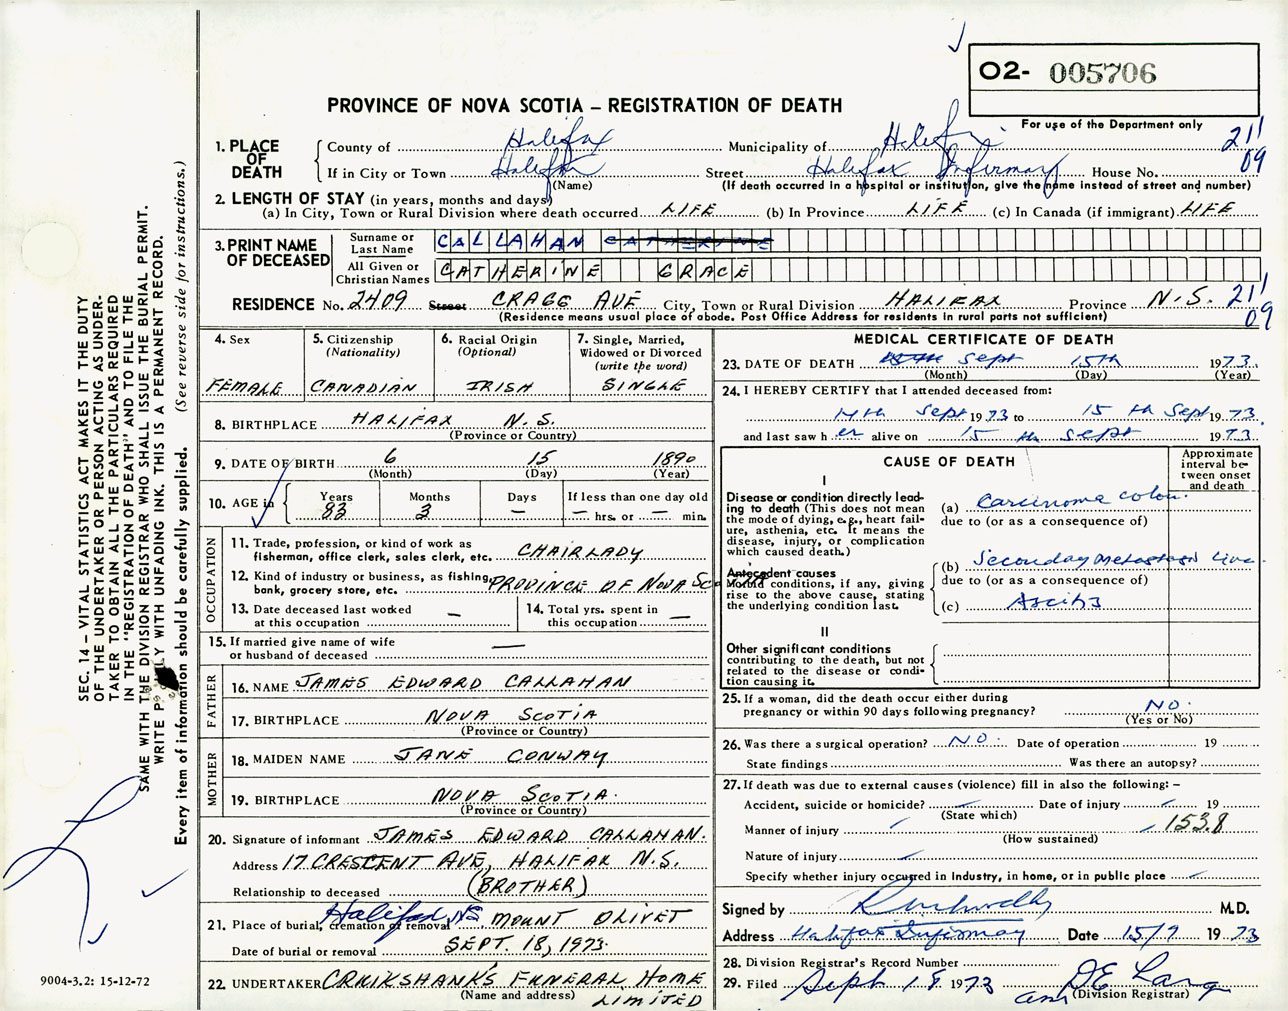 O2- 005706
PROVINCE OF NOVA SCOTIA – REGISTRATION OF DEATH
For use of the Department only
211
09
1. PLACE OF DEATH
County of Halifax Municipality of Halifax
If in City or Town Halifax Street Halifax Infirmary House No.
(Name) (If death occurred in a hospital or institution, give the name instead of street and number)
2. LENGTH OF STAY (in years, months and days)
(a) In City, Town or Rural Division where death occurred LIFE (b) In Province LIFE (c) In Canada (if immigrant) LIFE
3. PRINT NAME OF DECEASED
Surname or Last Name CALLAHAN CATHERINE
All Given or Christian Names CATHERINE GRACE
RESIDENCE No. 2409 Street CRAGG AVE City, Town or Rural Division HALIFAX Province N.S. 211
09
(Residence means usual place of abode. Post Office Address for residents in rural parts not sufficient)
4. Sex
FEMALE
5. Citizenship
(Nationality)
CANADIAN
6. Racial Origin
(Optional)
IRISH
7. Single, Married,
Widowed or Divorced
(write the word)
SINGLE
8. BIRTHPLACE HALIFAX N.S.
(Province or Country)
9. DATE OF BIRTH 6 15 1890
(Month) (Day) (Year)
10. AGE in
Years Months Days If less than one day old
83 3 — — hrs. or — min.
OCCUPATION
11. Trade, profession, or kind of work as
fisherman, office clerk, sales clerk, etc. CHAIRLADY
12. Kind of industry or business, as fishing,
bank, grocery store, etc. PROVINCE OF NOVA SCOTIA
13. Date deceased last worked
at this occupation —
14. Total yrs. spent in
this occupation —
15. If married give name of wife
or husband of deceased —
FATHER
16. NAME JAMES EDWARD CALLAHAN
17. BIRTHPLACE NOVA SCOTIA
(Province or Country)
MOTHER
18. MAIDEN NAME JANE CONWAY
19. BIRTHPLACE NOVA SCOTIA.
(Province or Country)
20. Signature of informant JAMES EDWARD CALLAHAN.
Address 17 CRESCENT AVE, HALIFAX N.S.
Relationship to deceased (BROTHER)
21. Place of burial, cremation or removal Halifax NS. MOUNT OLIVET
Date of burial or removal SEPT. 18, 1973
22. UNDERTAKER CRUIKSHANK'S FUNERAL HOME
(Name and address) LIMITED
MEDICAL CERTIFICATE OF DEATH
23. DATE OF DEATH Sept 15th 1973.
(Month) (Day) (Year)
24. I HEREBY CERTIFY that I attended deceased from:
14th Sept 1973 to 15 th Sept 1973.
and last saw her alive on 15 th Sept 1973.
CAUSE OF DEATH
Approximate
interval be-
tween onset
and death
I
Disease or condition directly lead-
ing to death (This does not mean
the mode of dying, e.g., heart fail-
ure, asthenia, etc. It means the
disease, injury, or complication
which caused death.)
(a) Carcinoma colon.
due to (or as a consequence of)
Antecedent causes
Morbid conditions, if any, giving
rise to the above cause, stating
the underlying condition last.
(b) Seconday metastasis Live
due to (or as a consequence of)
(c) Ascitis
II
Other significant conditions
contributing to the death, but not
related to the disease or condi-
tion causing it.
25. If a woman, did the death occur either during
pregnancy or within 90 days following pregnancy? NO.
(Yes or No)
26. Was there a surgical operation? NO. Date of operation 19
State findings Was there an autopsy?
27. If death was due to external causes (violence) fill in also the following: –
Accident, suicide or homicide? Date of injury 19
(State which)
Manner of injury 153.8
(How sustained)
Nature of injury
Specify whether injury occurred in industry, in home, or in public place
Signed by M.D.
Address Halifax Infirmary Date 15/9 1973
28. Division Registrar's Record Number
29. Filed Sept 18 1973
(Division Registrar)
SEC. 14 – VITAL STATISTICS ACT MAKES IT THE DUTY
OF THE UNDERTAKER OR PERSON ACTING AS UNDER-
TAKER TO OBTAIN ALL THE PARTICULARS REQUIRED
IN THE "REGISTRATION OF DEATH" AND TO FILE THE
SAME WITH THE DIVISION REGISTRAR WHO SHALL ISSUE THE BURIAL PERMIT.
WRITE PLAINLY WITH UNFADING INK. THIS IS A PERMANENT RECORD.
Every item of information should be carefully supplied. (See reverse side for instructions.)
9004-3.2: 15-12-72